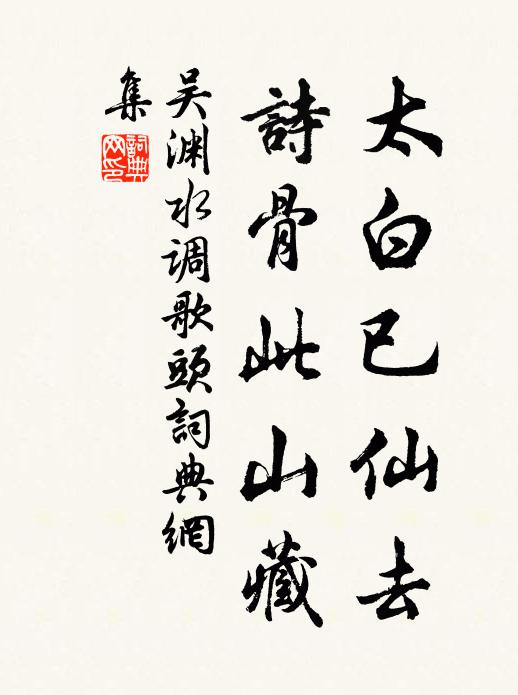 太白已仙去
詩骨此山藏
吴渊水调歌頭詞典網
集
詞典網印